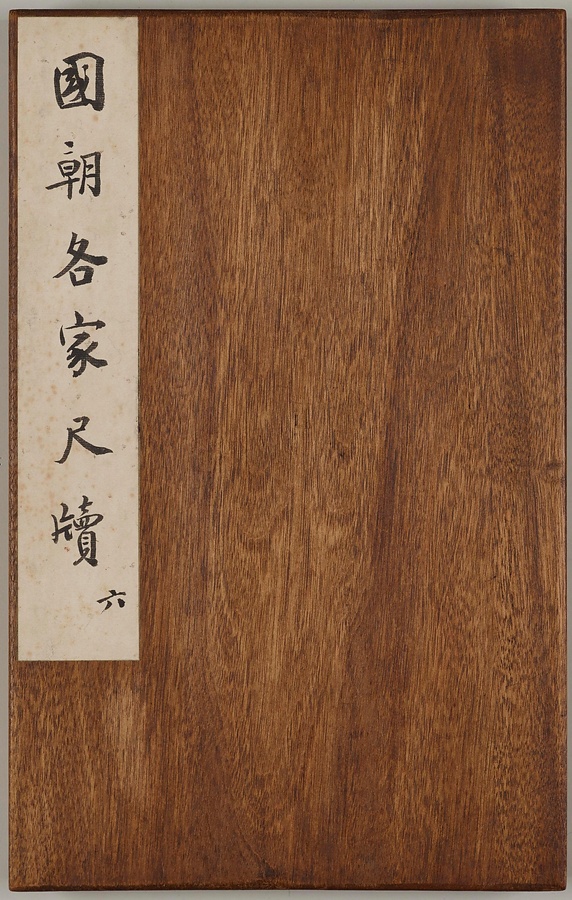 國朝各家尺牘
六